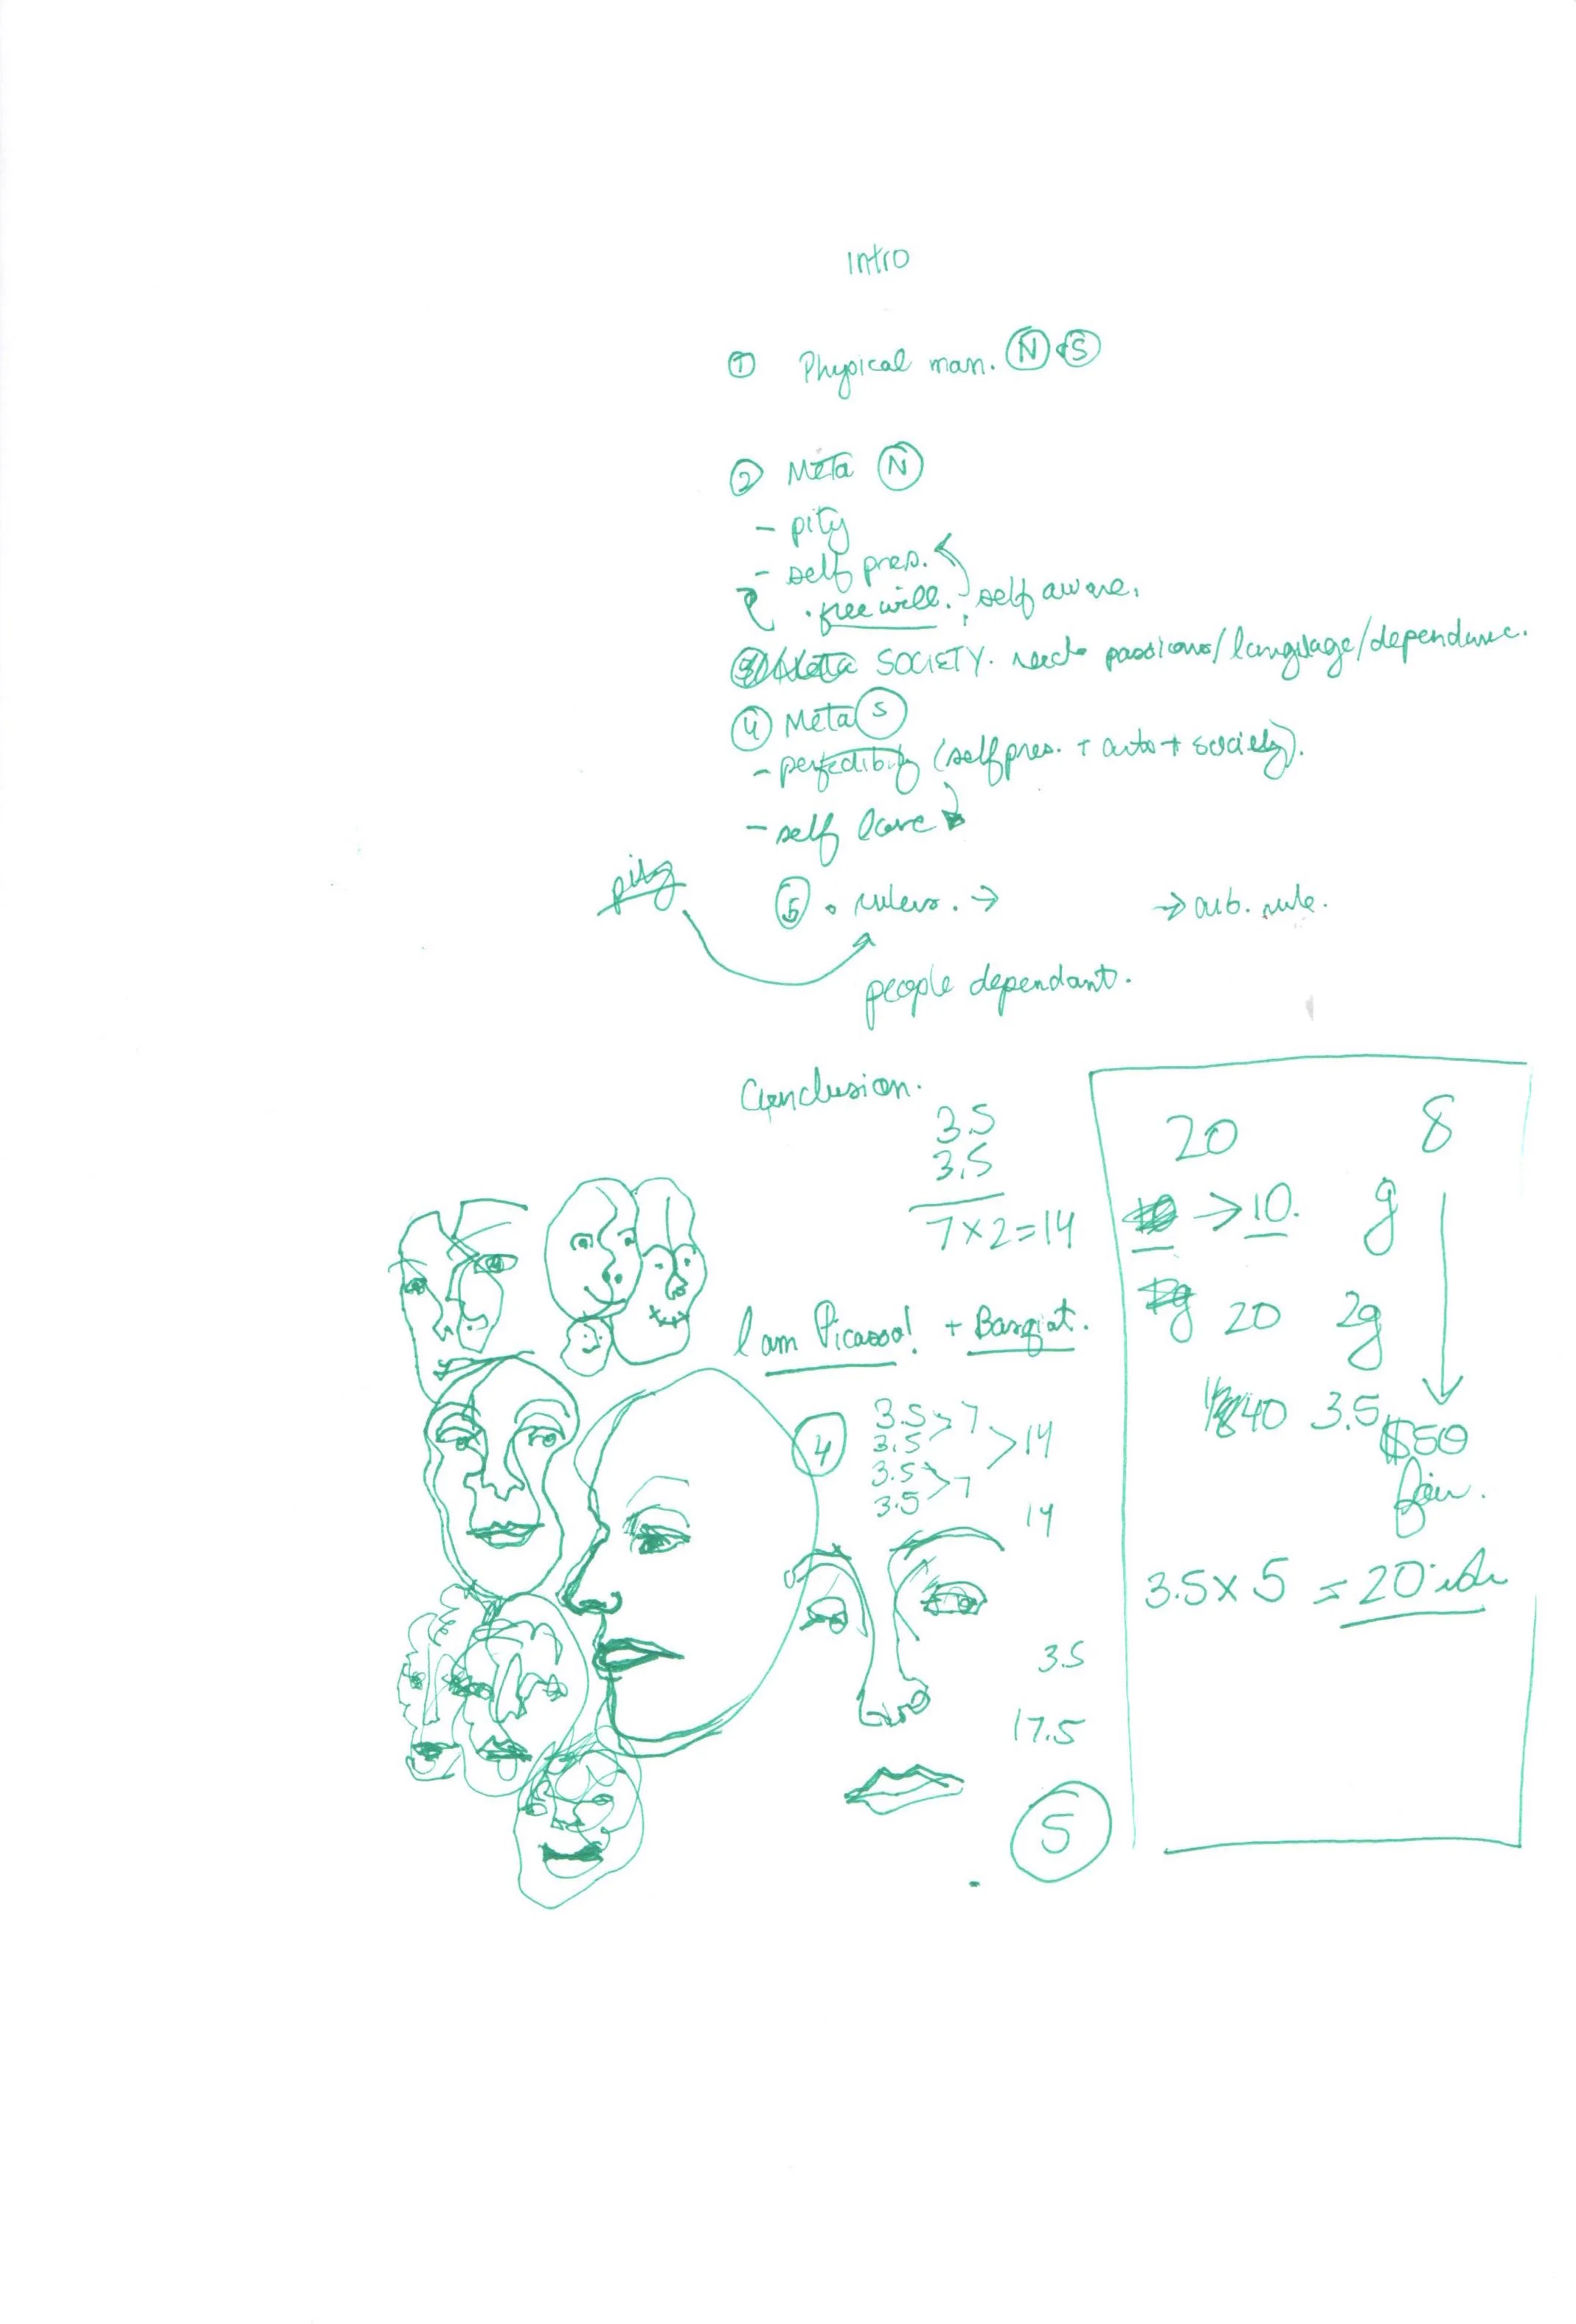 Intro
① Physical man. Ⓝ Ⓢ
② Meta Ⓝ
- pity
- self pres.
· free will. , self aware.
SOCIETY. need passions/language/dependance.
④ Meta Ⓢ
- perfectibity (self pres. + auto + society).
- self love
pity
⑤ • rulers. → → arb. rule.
people dependant.
Conclusion.
3.5
3.5
7 x 2 = 14
I am Picasso! + Basqiat.
④
3.5 > 7
3.5 > 14
3.5 > 7
3.5
14
3.5
17.5
⑤
20 8
→ 10. g
20 2g
40 3.5
$50
3.5 x 5 = 20